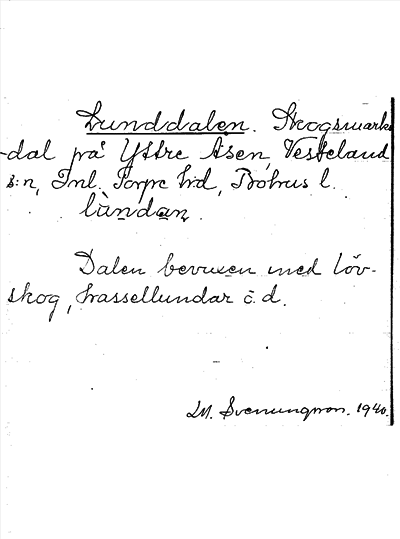 Lunddalen. Skogsmarks
-dal på Yttre Åsen, Vesteland
s:n, Inl. Torpe h:d, Bohus l.
lùndan.
Dalen bevuxen med löv-
skog, hassellundar o. d.
M. Svenungson. 1940.